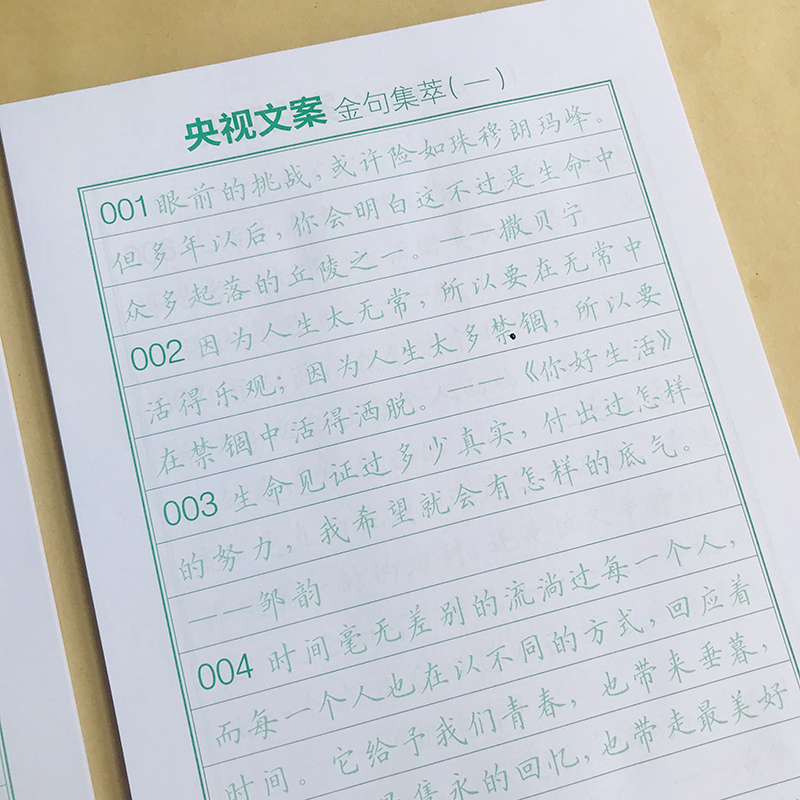 央视文案 金句集萃(一)
001 眼前的挑战,或许险如珠穆朗玛峰。
但多年以后,你会明白这不过是生命中
众多起落的丘陵之一。——撒贝宁
002 因为人生太无常,所以要在无常中
活得乐观;因为人生太多禁锢,所以要
在禁锢中活得洒脱。——《你好生活》
003 生命见证过多少真实,付出过怎样
的努力,我希望就会有怎样的底气。
——邹韵
004 时间毫无差别的流淌过每一个人,
而每一个人也在以不同的方式,回应着
时间。它给予我们青春,也带来垂暮,
隽永的回忆,也带走最美好